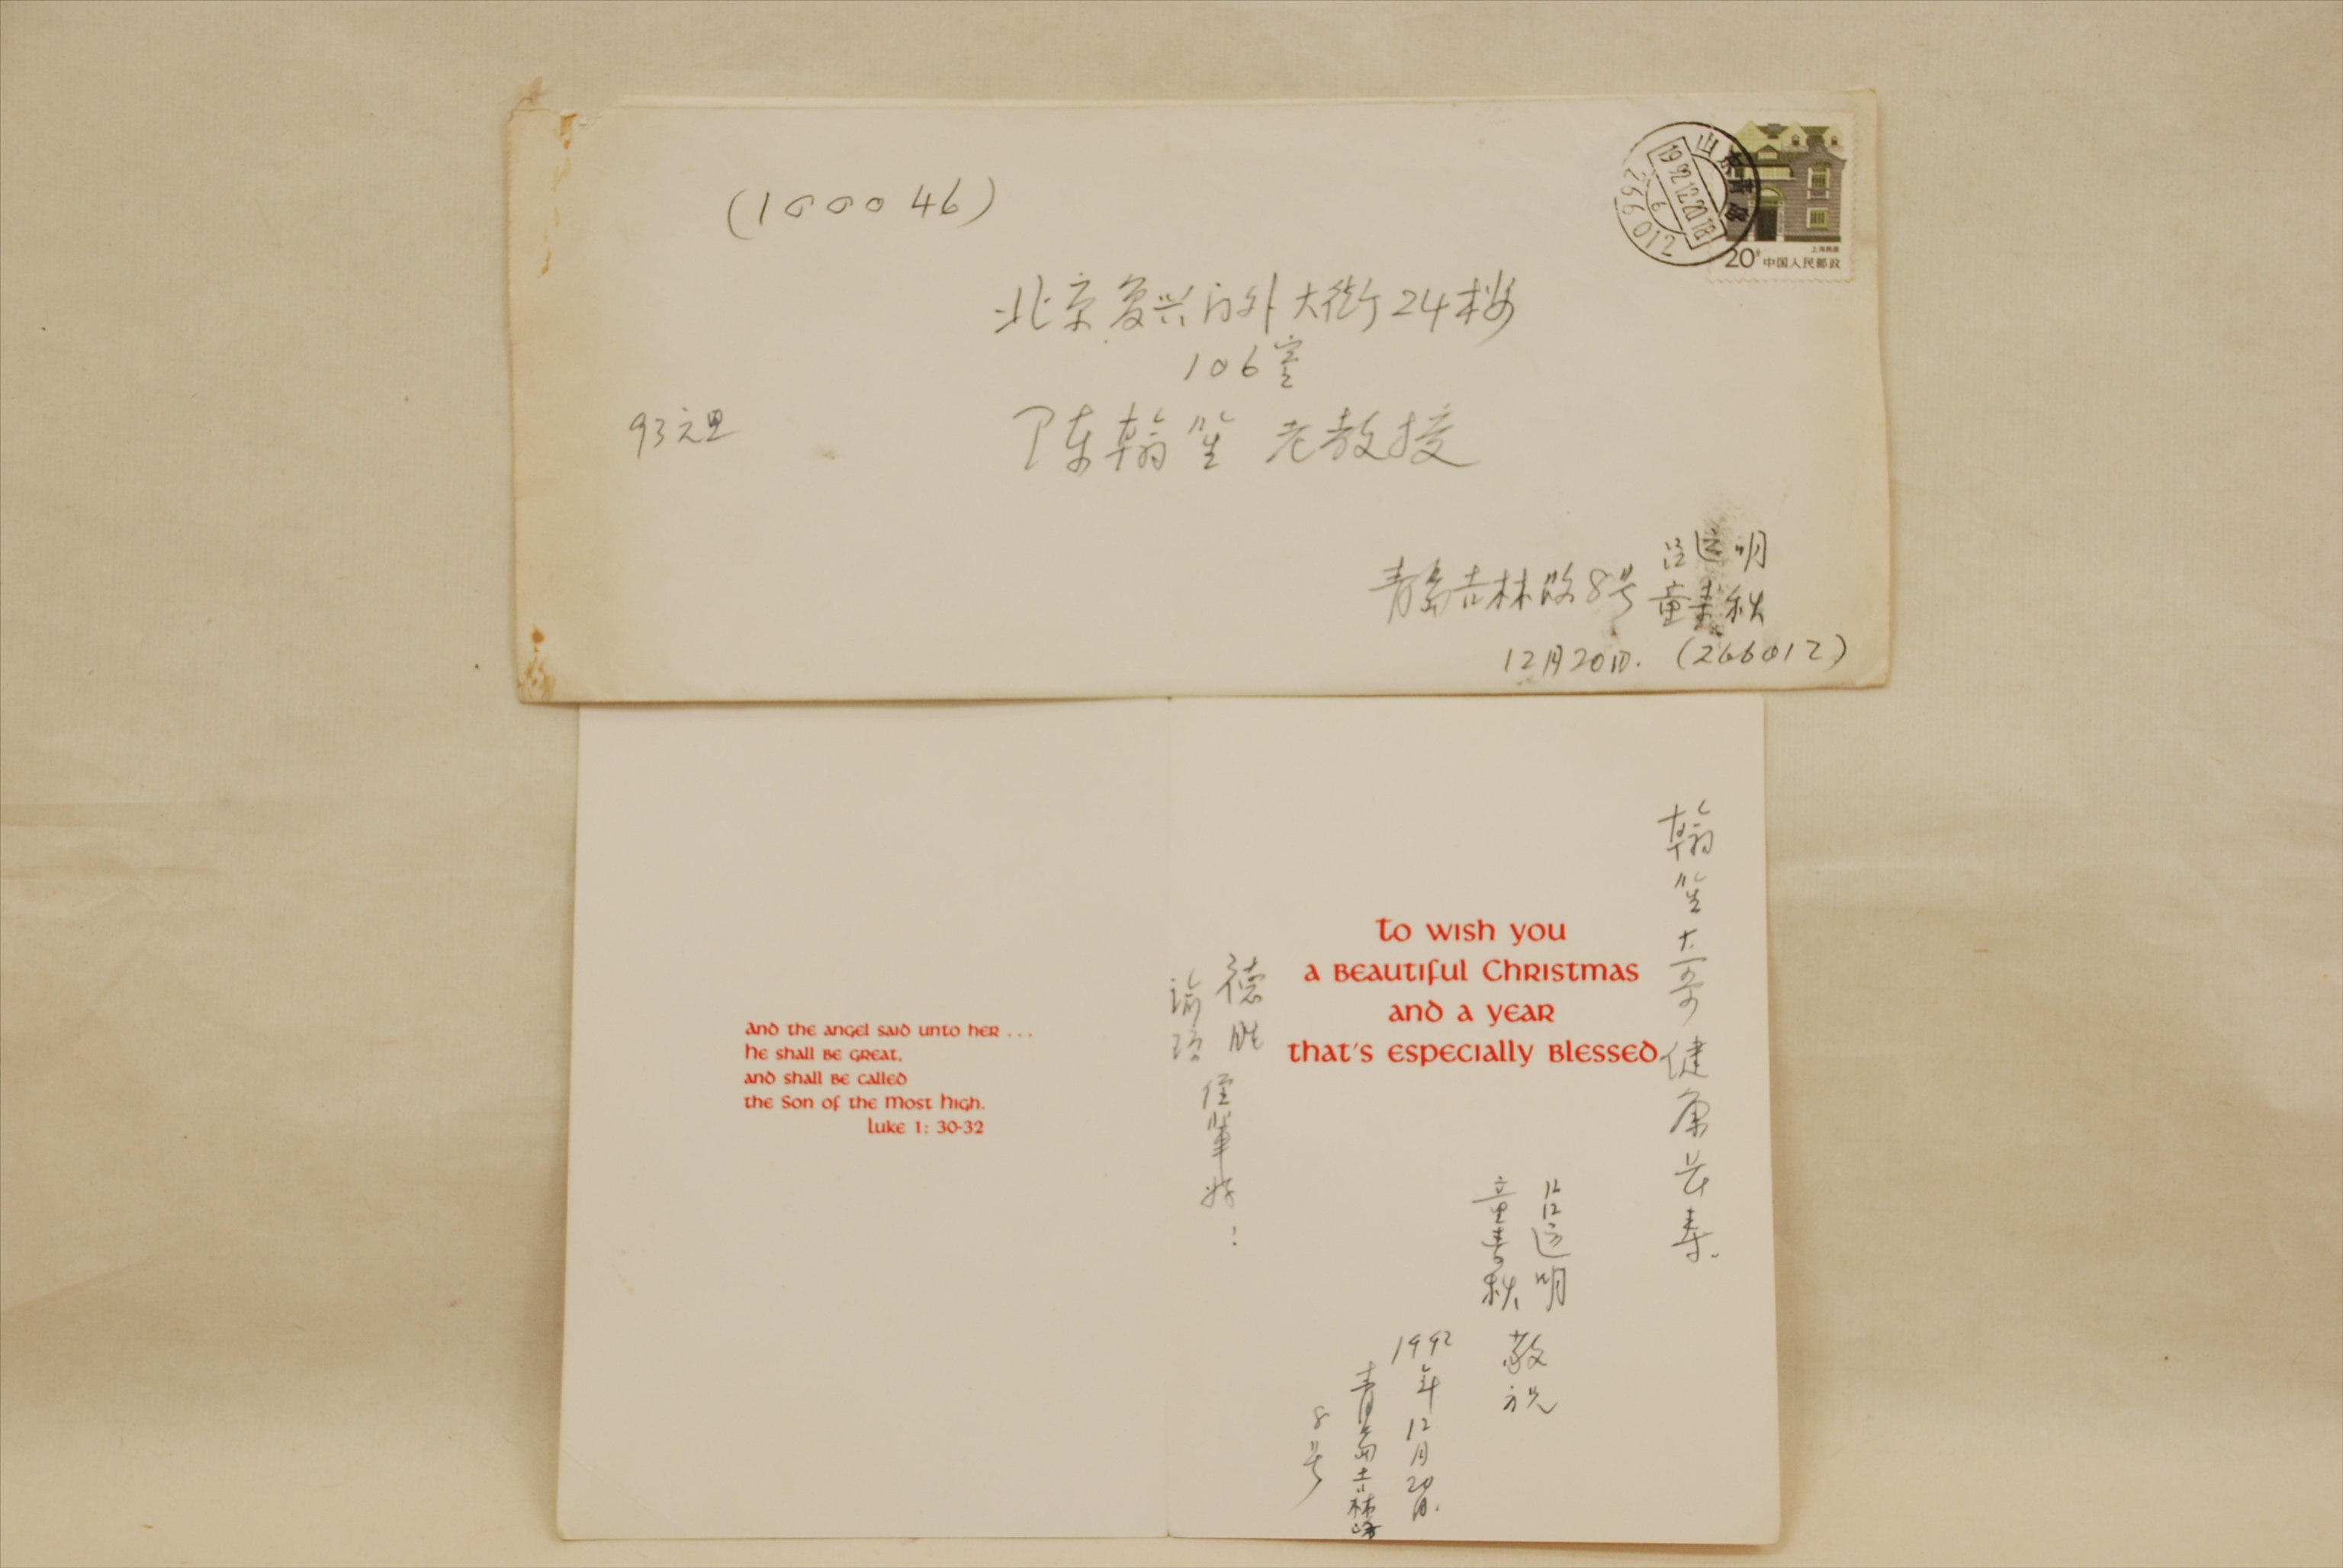 (100046)
山东青岛
1992.12.20.18
6
266012
上海民居
20分 中国人民邮政
北京复兴门外大街24楼
106室
93元旦
陈翰笙 老教授
青岛吉林路8号
明
童 秋
12月20日. (266012)
And the angel said unto her ...
He shall be great,
and shall be called
the Son of the Most High.
Luke 1: 30-32
To wish you
a beautiful Christmas
and a year
that's especially blessed
翰笙大哥健康长寿。
明
童 秋
敬祝
1992年12月20日.
青岛吉林路
8号
德胜
瑜
侄辈好!